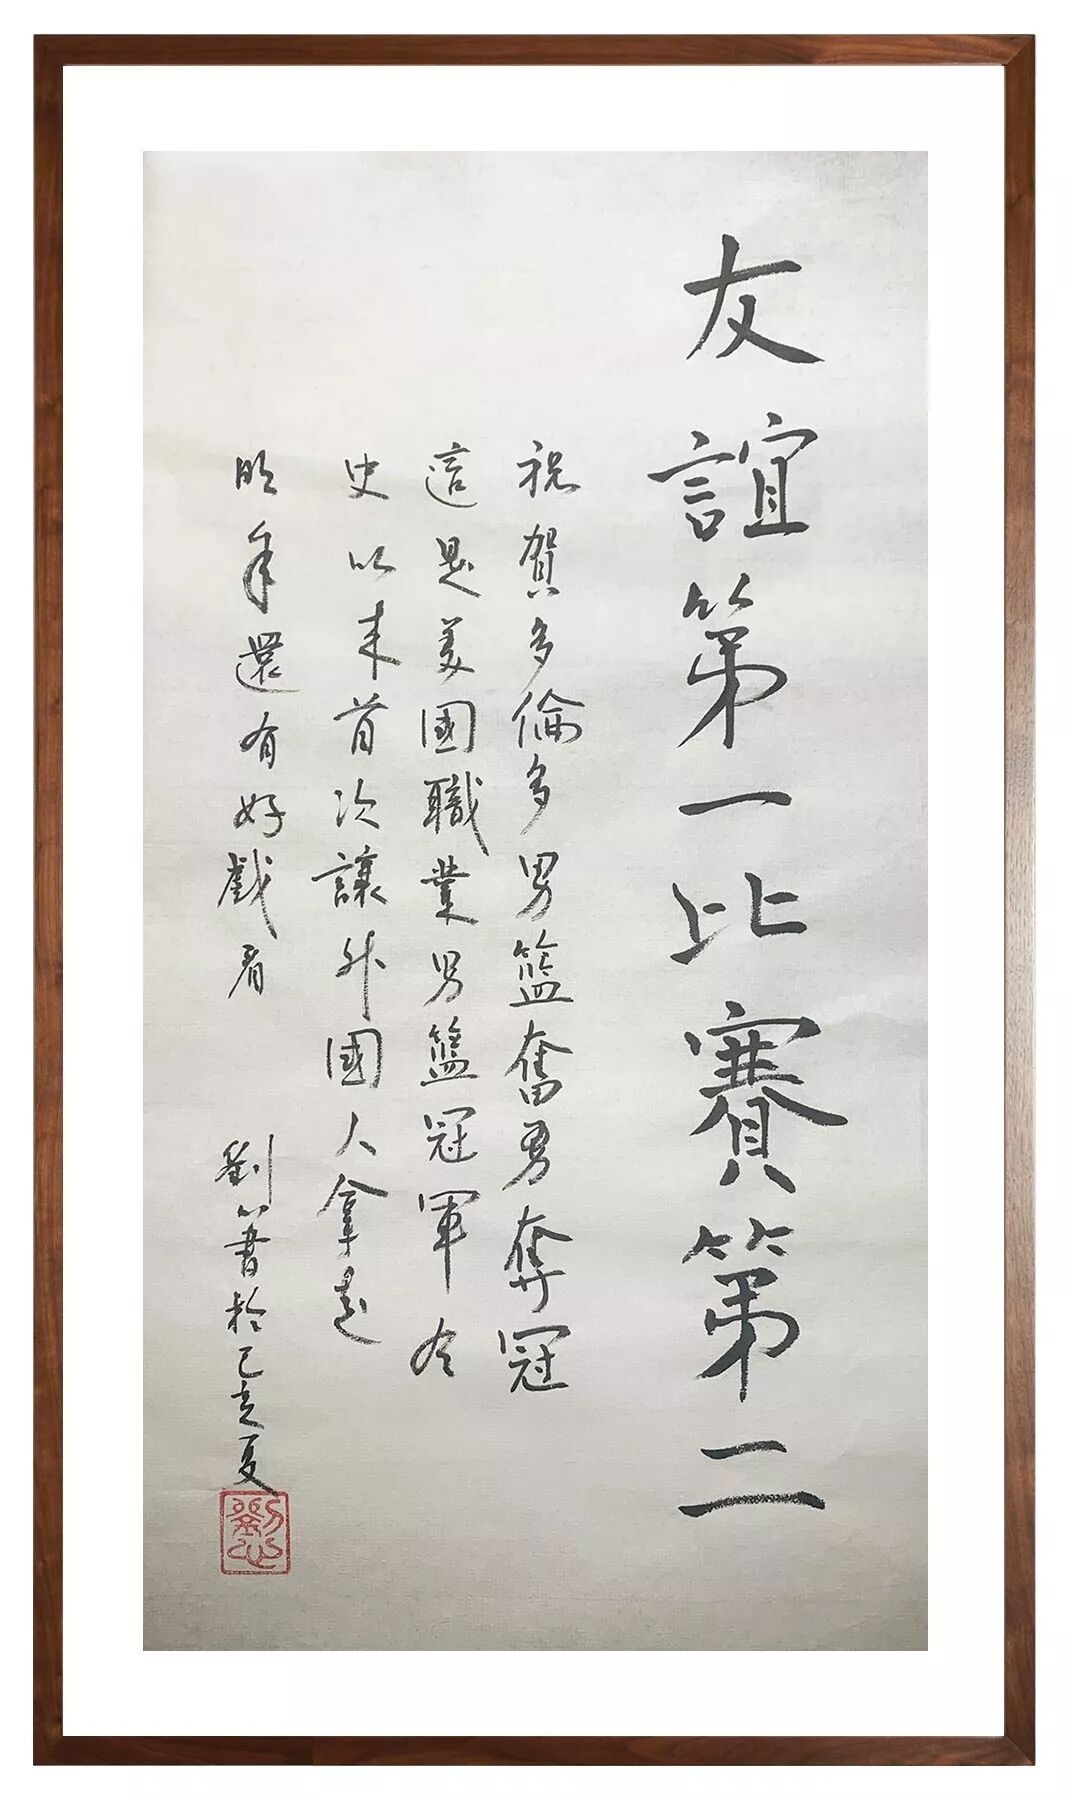 友誼第一比賽第二
祝賀多倫多男籃奮勇奪冠
這是美國職業男籃冠軍有
史以來首次讓外國人拿走
明年還有好戲看
劉心書於己亥夏
劉心